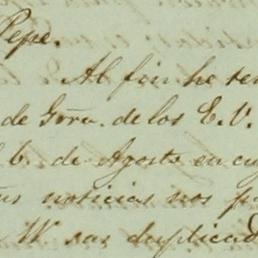 Pepe.
Al fin he
de Gtru. de los E. V.
6. de Agosto en
noticias nos
W sar duplicad